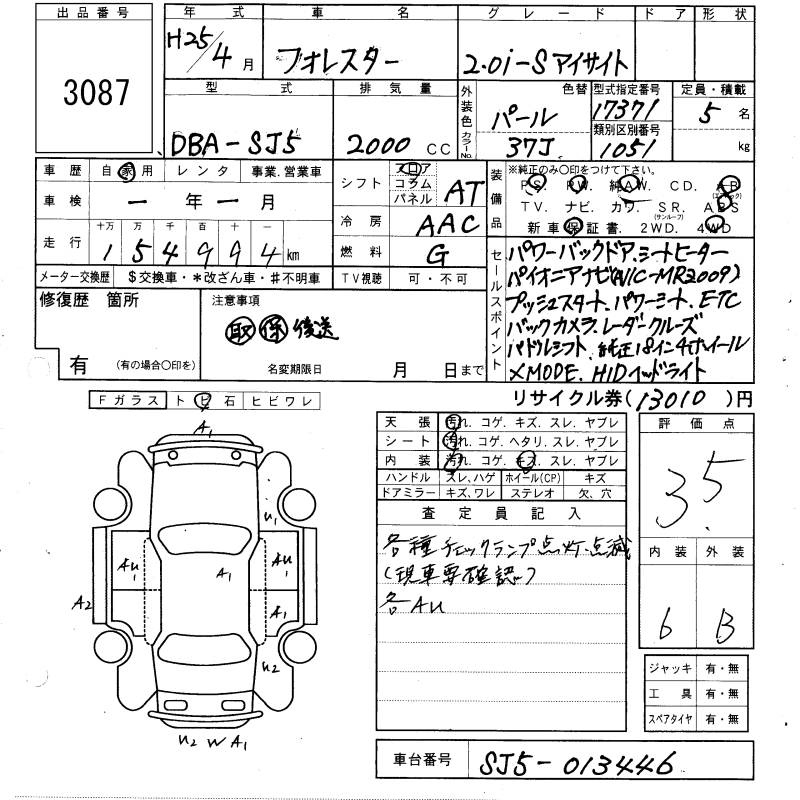 出品番号
3087
年式 車名 グレード ドア 形状
H25/4月 フォレスター 2.0i-Sアイサイト
型式 排気量 外装色 色替 型式指定番号 定員・積載
DBA-SJ5 2000CC パール 17371 5名
カラーNo. 37J 類別区別番号 1051 kg
車歴 自家用 レンタ 事業.営業車
車検 ー年ー月
走行 十万 万 千 百 十 一
154994km
メーター交換歴 $交換車・*改ざん車・#不明車
シフト フロア コラム パネル AT
冷房 AAC
燃料 G
TV視聴 可・不可
装備品 ※純正のみ〇印をつけて下さい。
PS PW. 純AW. CD. AB
(エアバック)
TV. ナビ. カワ. SR. ABS
(サンルーフ)
新車保証書. 2WD. 4WD
セールスポイント
パワーバックドア.シートヒーター
パイオニアナビ(AVIC-MR2009)
プッシュスタート.パワーシート.ETC
バックカメラ.レーダークルーズ
パドルシフト.純正18インチホイール
XMODE.HIDヘッドライト
修復歴 箇所
有 (有の場合〇印を)
注意事項
取 保 後送
名変期限日 月 日まで
リサイクル券(13010)円
Fガラス トビ石 ヒビワレ
A1
U1
AU1 A1 AU1
A2 A1
U2
U2 W A1
天張 汚れ. コゲ. キズ. スレ. ヤブレ
シート 汚れ. コゲ. ヘタリ. スレ. ヤブレ
内装 汚れ. コゲ. キズ. スレ. ヤブレ
ハンドル スレ、ハゲ ホイール(CP) キズ
ドアミラー キズ、ワレ ステレオ 欠、穴
査定員記入
各種チェックランプ点灯.点滅
(現車要確認。)
各AU
評価点
3.5
内装 外装
6 B
ジャッキ 有・無
工具 有・無
スペアタイヤ 有・無
車台番号 SJ5-013446